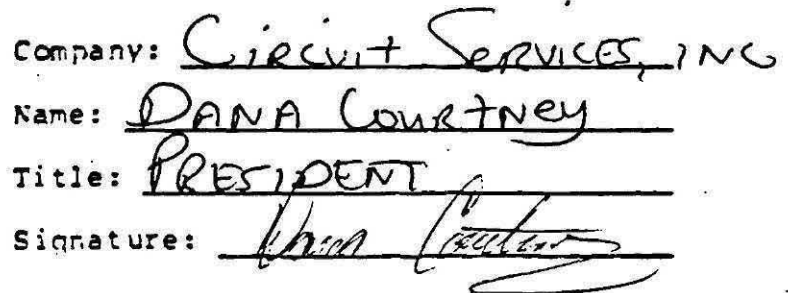 Company: Circuit Services, INC
Name: DANA Courtney
Title: PRESIDENT
Signature: Dana Courtney